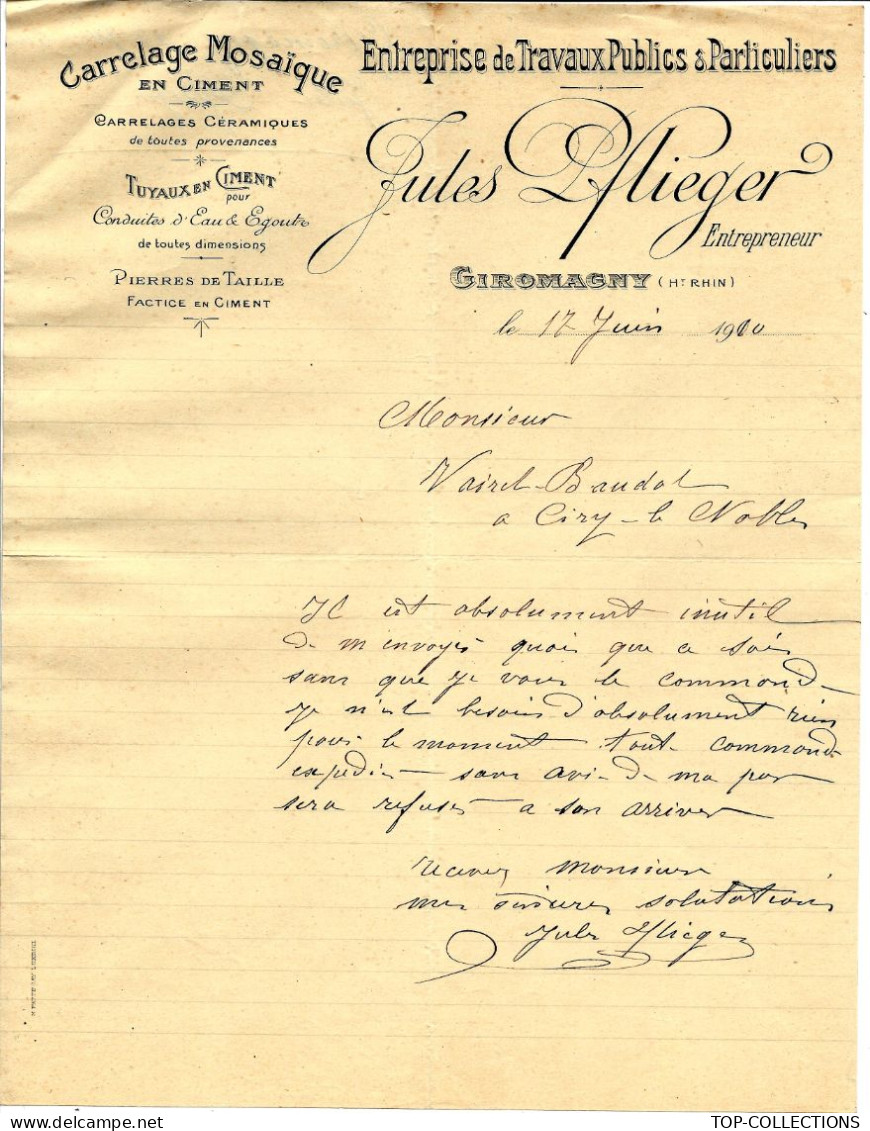 Carrelage Mosaïque
EN CIMENT
CARRELAGES CÉRAMIQUES
de toutes provenances
TUYAUX EN CIMENT
pour
Conduites d'Eau & Egouts
de toutes dimensions
PIERRES DE TAILLE
FACTICE EN CIMENT
Entreprise de Travaux Publics & Particuliers
Jules Pflieger
Entrepreneur
GIROMAGNY (HT RHIN)
le 17 Juin 1910
Monsieur
Vairet-Baudot
a Ciry-le Nobles
Il est absolument inutil
de m'envoyés quois que ce sois
sans que je vous le command
je n'est besoin d'absolument rien
pour le moment tout command
expedie sans avi de ma par
sera refuses a son arriver
recever monsieur
mes sinceres solutations
Jules Pflieger
TOP-COLLECTIONS